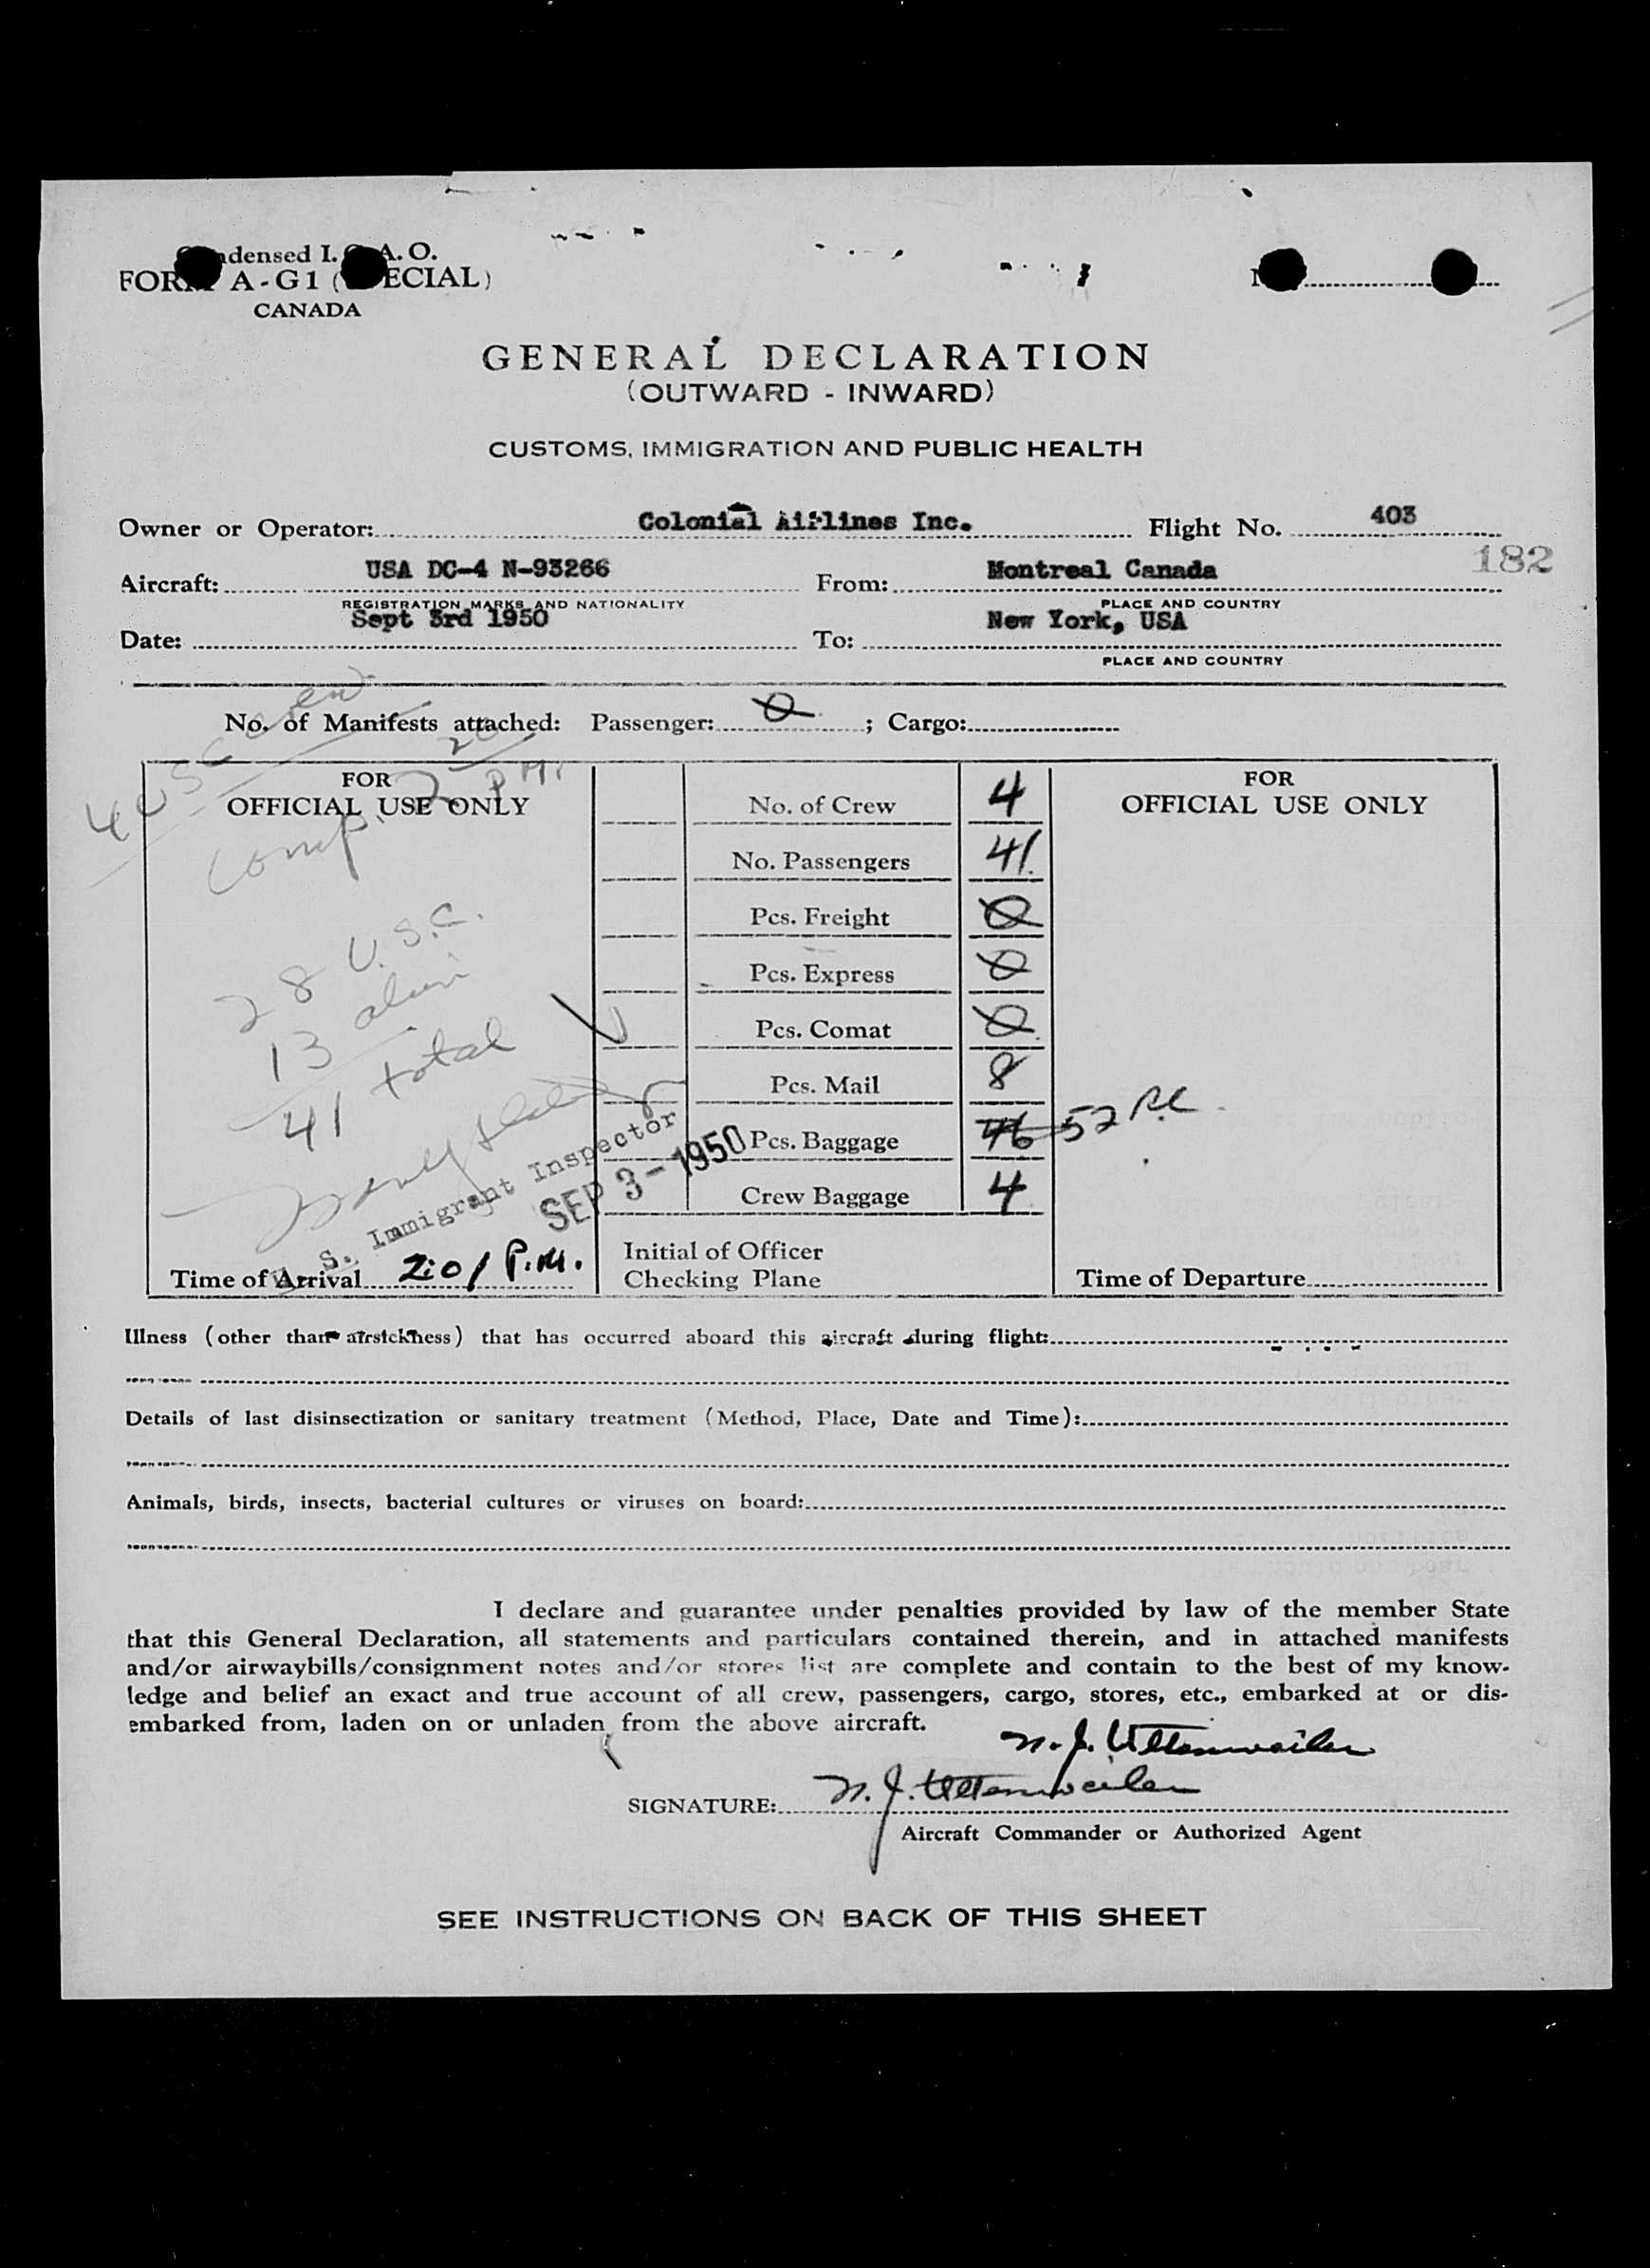 Condensed I.C.A.O.
FORM A-G1 (SPECIAL)
CANADA
GENERAL DECLARATION
(OUTWARD - INWARD)
CUSTOMS, IMMIGRATION AND PUBLIC HEALTH
Owner or Operator: Colonial Airlines Inc. Flight No. 403
182
Aircraft: USA DC-4 N-93266 From: Montreal Canada
REGISTRATION MARKS AND NATIONALITY PLACE AND COUNTRY
Date: Sept 3rd 1950 To: New York, USA
PLACE AND COUNTRY
No. of Manifests attached: Passenger: 0 ; Cargo:
4 USC crew
FOR
OFFICIAL USE ONLY
Comp. 2 20 PM.
28 U.S.C.
13 alien
41 total
U. S. Immigrant Inspector
SEP 3 - 1950
Time of Arrival 2:01 P.M.
No. of Crew 4
No. Passengers 41.
Pcs. Freight 0
Pcs. Express 0
Pcs. Comat 0
Pcs. Mail 8
Pcs. Baggage 46 52 RC
Crew Baggage 4
Initial of Officer
Checking Plane
FOR
OFFICIAL USE ONLY
Time of Departure
Illness (other than airsickness) that has occurred aboard this aircraft during flight:
Details of last disinsectization or sanitary treatment (Method, Place, Date and Time):
Animals, birds, insects, bacterial cultures or viruses on board:
I declare and guarantee under penalties provided by law of the member State
that this General Declaration, all statements and particulars contained therein, and in attached manifests
and/or airwaybills/consignment notes and/or stores list are complete and contain to the best of my know-
ledge and belief an exact and true account of all crew, passengers, cargo, stores, etc., embarked at or dis-
embarked from, laden on or unladen from the above aircraft.
N. J. Uttenweiler
SIGNATURE: N. J. Uttenweiler
Aircraft Commander or Authorized Agent
SEE INSTRUCTIONS ON BACK OF THIS SHEET